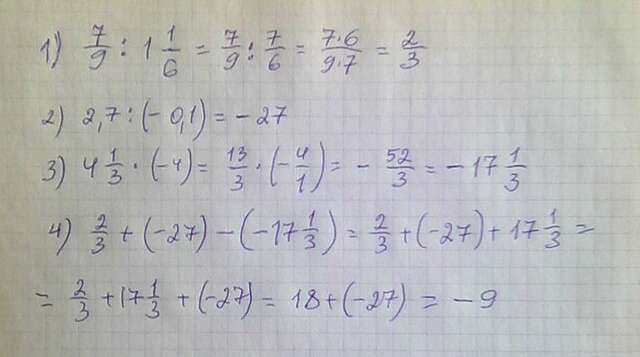 1) 7/9 : 1 1/6 = 7/9 : 7/6 = 7·6/9·7 = 2/3
2) 2,7 : (- 0,1) = - 27
3) 4 1/3 · (-4) = 13/3 · (- 4/1) = - 52/3 = - 17 1/3
4) 2/3 + (-27) - (-17 1/3) = 2/3 + (-27) + 17 1/3 =
= 2/3 + 17 1/3 + (-27) = 18 + (-27) = - 9